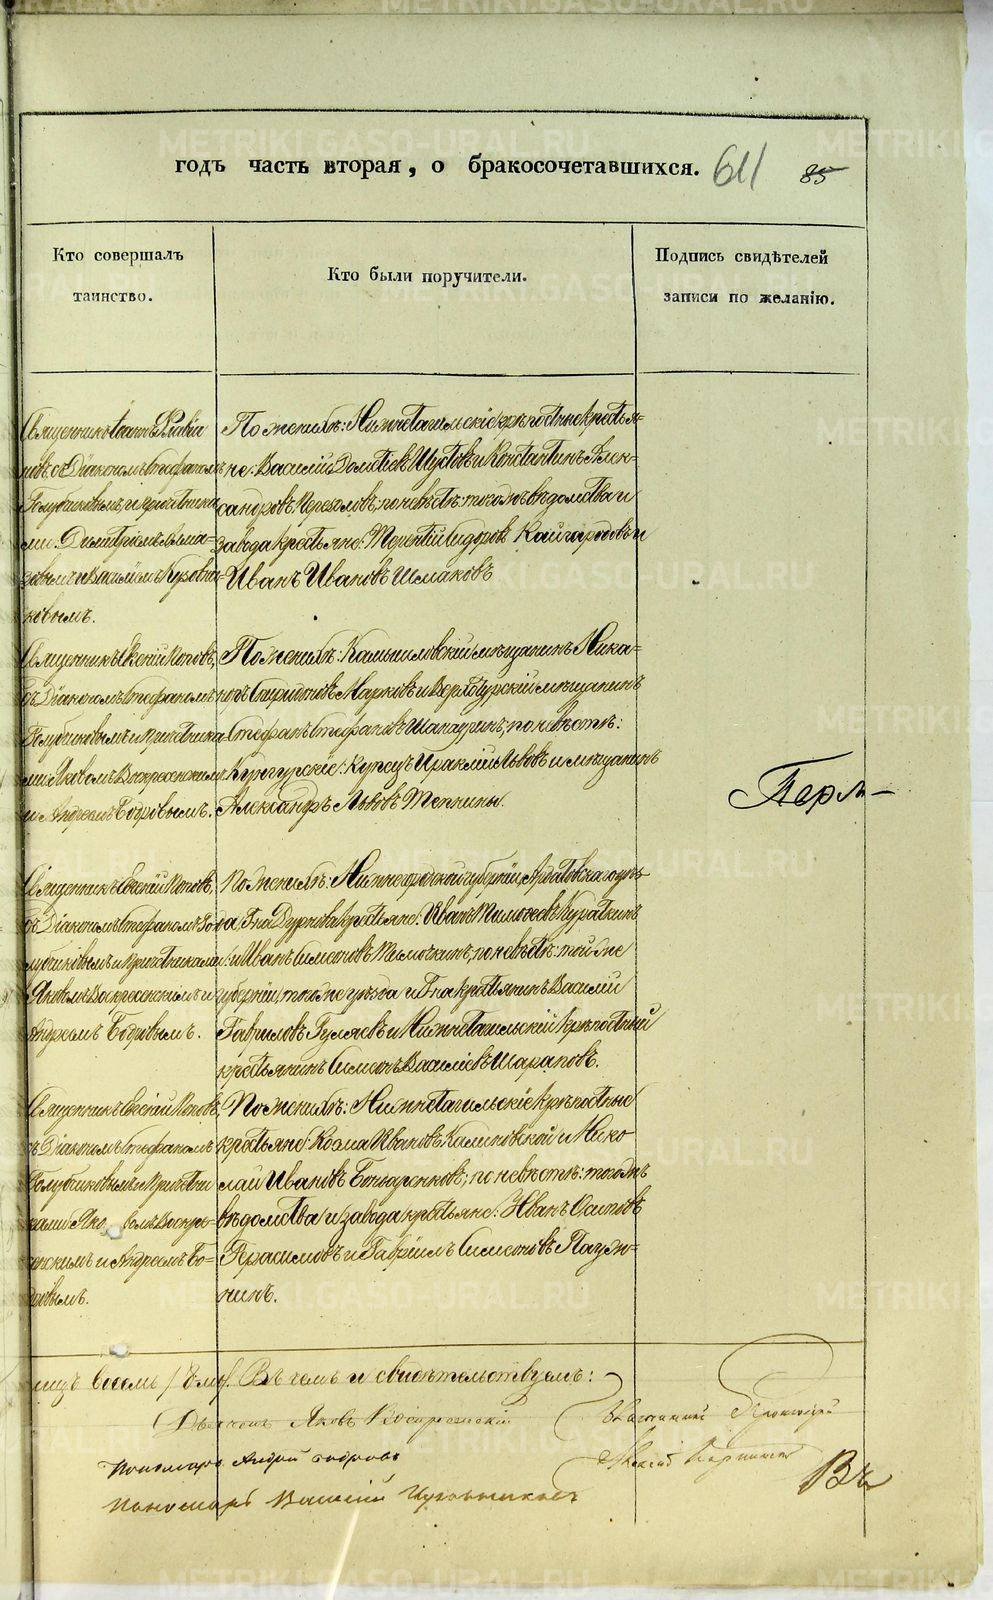 годъ часть вторая, о бракосочетавшихся. 611 85
Кто совершалъ
таинство.
Кто были поручители.
Подпись свидѣтелей
записи по желанію.
Священникъ Іоаннъ
новъ, съ Діакономъ Стефаномъ
Голубчиковымъ и причетника
ми: Димитріемъ Алма-
зовымъ и Василіемъ Куровни-
ковымъ.
По женихѣ: Нижнетагильскіе крѣпостные крестья-
не: Василій Шустовъ и Константинъ Алек-
сандровъ Черемховъ; по невѣстѣ: тогоже вѣдомства и
завода крестьяне: Терентій Сидоровъ Кайгородовъ и
Иванъ Ивановъ Шмаковъ
Священникъ Евгеній Поповъ,
съ Діакономъ Стефаномъ
Голубчиковымъ и причетника
ми Яковомъ Воскресенскимъ
и Андреемъ Бобровымъ.
По женихѣ: Камышловскій мѣщанинъ Ника-
норъ Спиридоновъ Марковъ и Верхотурскій мѣщанинъ
Стефанъ Стефановъ Шапаурин; по невѣстѣ:
Кунгурскіе: Купецъ Ираклій Львовъ и мѣщанинъ
Александръ Львовъ Тепкины.
Перм-
Священникъ Евгеній Поповъ,
съ Діакономъ Стефаномъ Го-
лубчиковымъ и причетниками
Яковомъ Воскресенскимъ и
Андреемъ Бобровымъ.
По женихѣ: Нижегородской губерніи, Ардатовскаго уѣз-
да, Гна Дурнова крестьяне: Иванъ Тимофеевъ Кураткинъ
и Иванъ Симеоновъ Темочкинъ; по невѣстѣ: той же
губерніи, того же уѣзда и Гна крестьянинъ Василій
Гавриловъ Гуляевъ и Нижнетагильскій крѣпостный
крестьянинъ Симеонъ Василіевъ Шараповъ.
Священникъ Евгеній Поповъ,
съ Діакономъ Стефаномъ
Голубчиковымъ и причетни
ками Яковомъ Воскре-
сенскимъ и Андреемъ Бо-
бровымъ.
По женихѣ: Нижнетагильскіе крѣпостные
крестьяне: Козма Ивановъ Калиновской и Нико
лай Ивановъ Бондаренковъ; по невѣстѣ: тогожъ
вѣдомства и завода крестьяне: Иванъ Осиповъ
Герасимовъ и Гавріилъ Симеоновъ Пауж-
нинъ.
ницъ восемь /8 Въ чемъ и свидѣтельствуемъ:
Дьячокъ Яковъ Воскресенскій
Пономарь Андрей Бобровъ
Пономарь Василій Куровниковъ
Въ